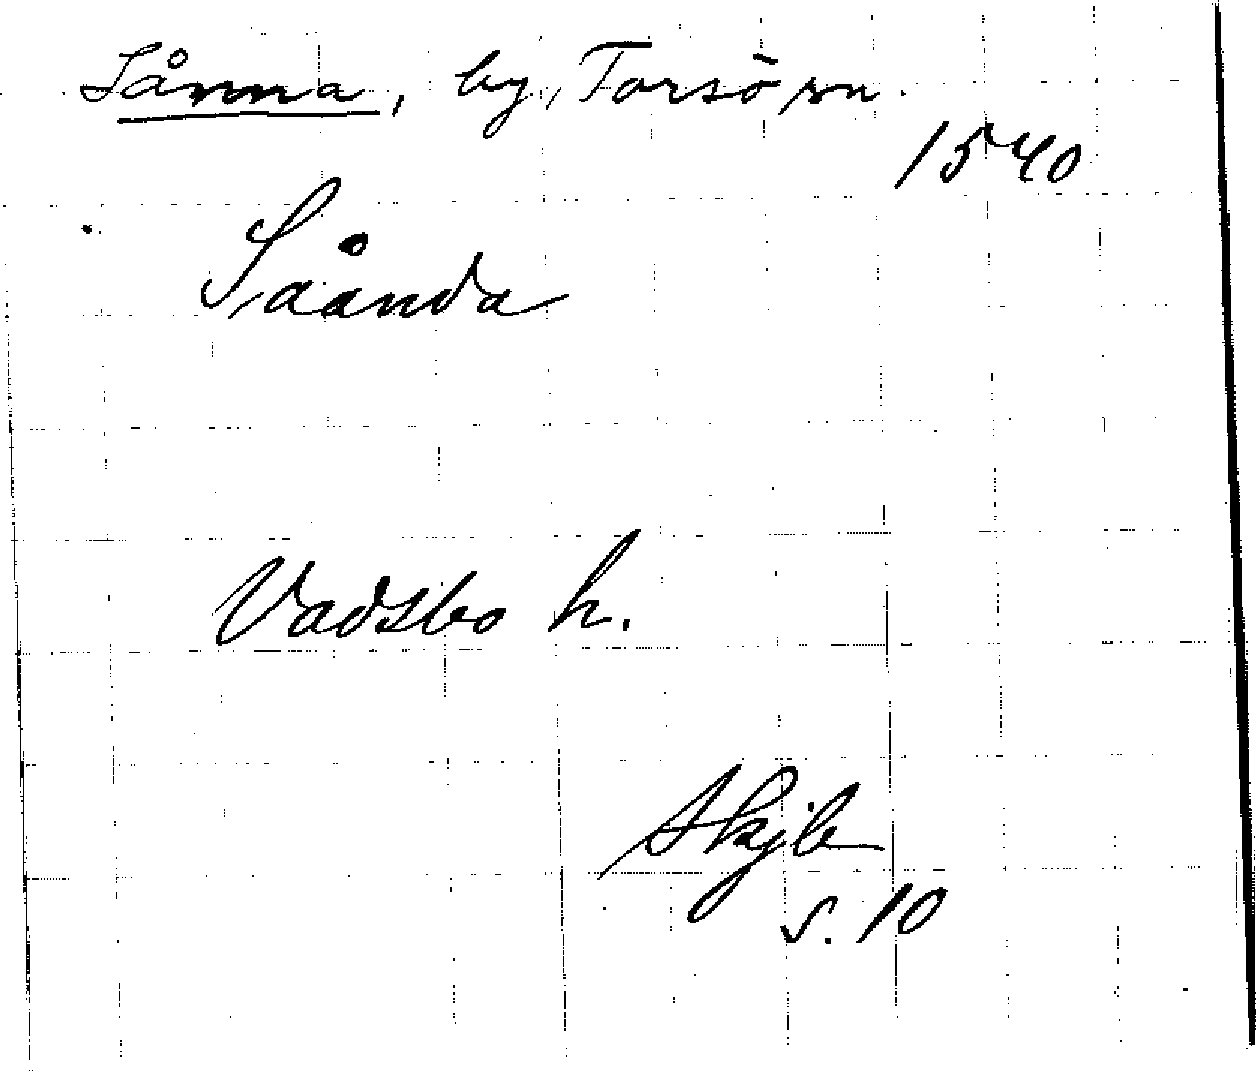 Sånna, by, Torsö sn.
1540
Saånda
Vadsbo h.
Skjb
s. 10